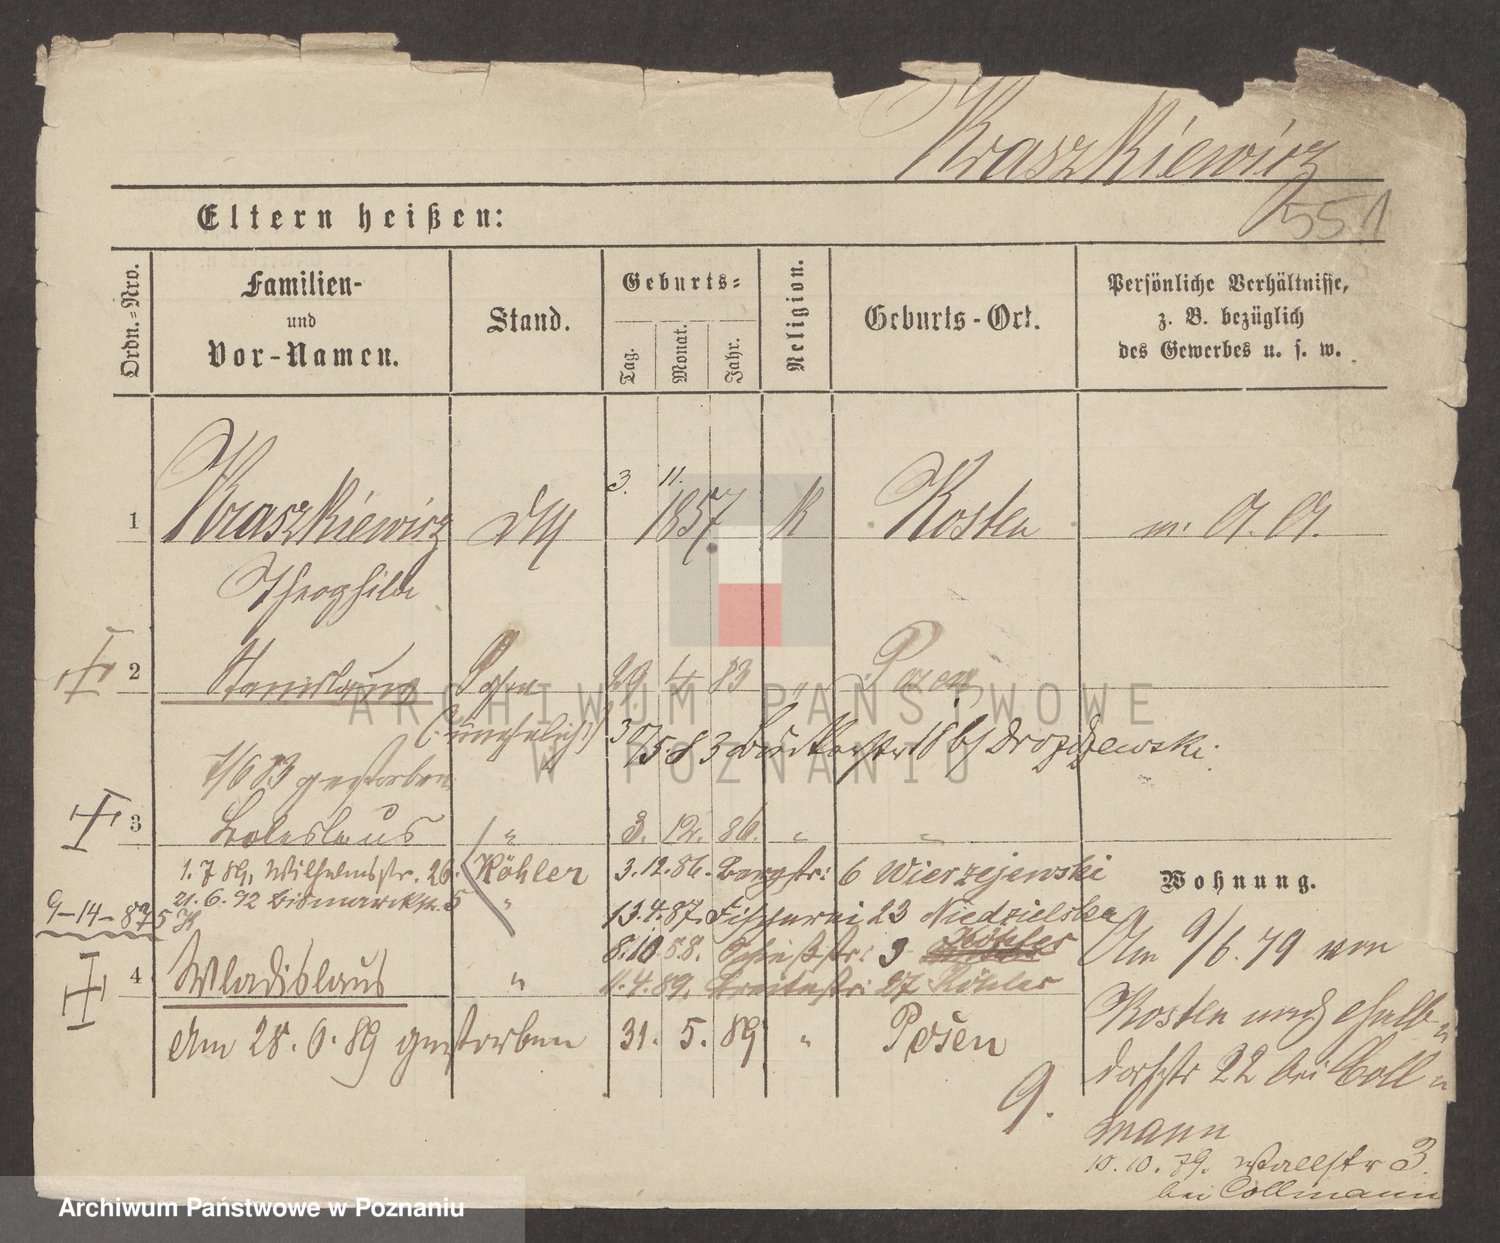 Kraszkiewicz
551
Eltern heißen:
Ordn.-Nro.
Familien-
und
Vor-Namen.
Stand.
Geburts-
Tag.
Monat.
Jahr.
Religion.
Geburts-Ort.
Persönliche Verhältnisse,
z. B. bezüglich
des Gewerbes u. s. w.
1 Kraszkiewicz 3. 11. 1857 K Kosten
Theophila
2 Stanislaus Posen 29 4 83 " Posen
(unehelich)
30/5 83 18 b/ Drozdzewski.
1/6 83 gestorben
3 Boleslaus " 3. 12. 86. " "
1. 7 89, Wilhelmstr. 26. Köhler 3. 12. 86. Bergstr: 6 Wierzejewski
21. 6. 92 Bismarckstr. 5 " 13. 4. 87. Fischerei 23 Niedzielska
9-14-875
8. 10. 88. Schießstr: 3 Köhler
11. 4. 89. Breitestr: 27 Köhler
4 Wladislaus "
Am 28. 6. 89 gestorben 31. 5. 89 " Posen
9.
Wohnung.
Am 9/6. 79 von
Kosten nach Halb-
dorfstr 22 bei Coll-
mann
10. 10. 79. Wallstr 3.
bei Collmann
ARCHIWUM PAŃSTWOWE
W POZNANIU
Archiwum Państwowe w Poznaniu